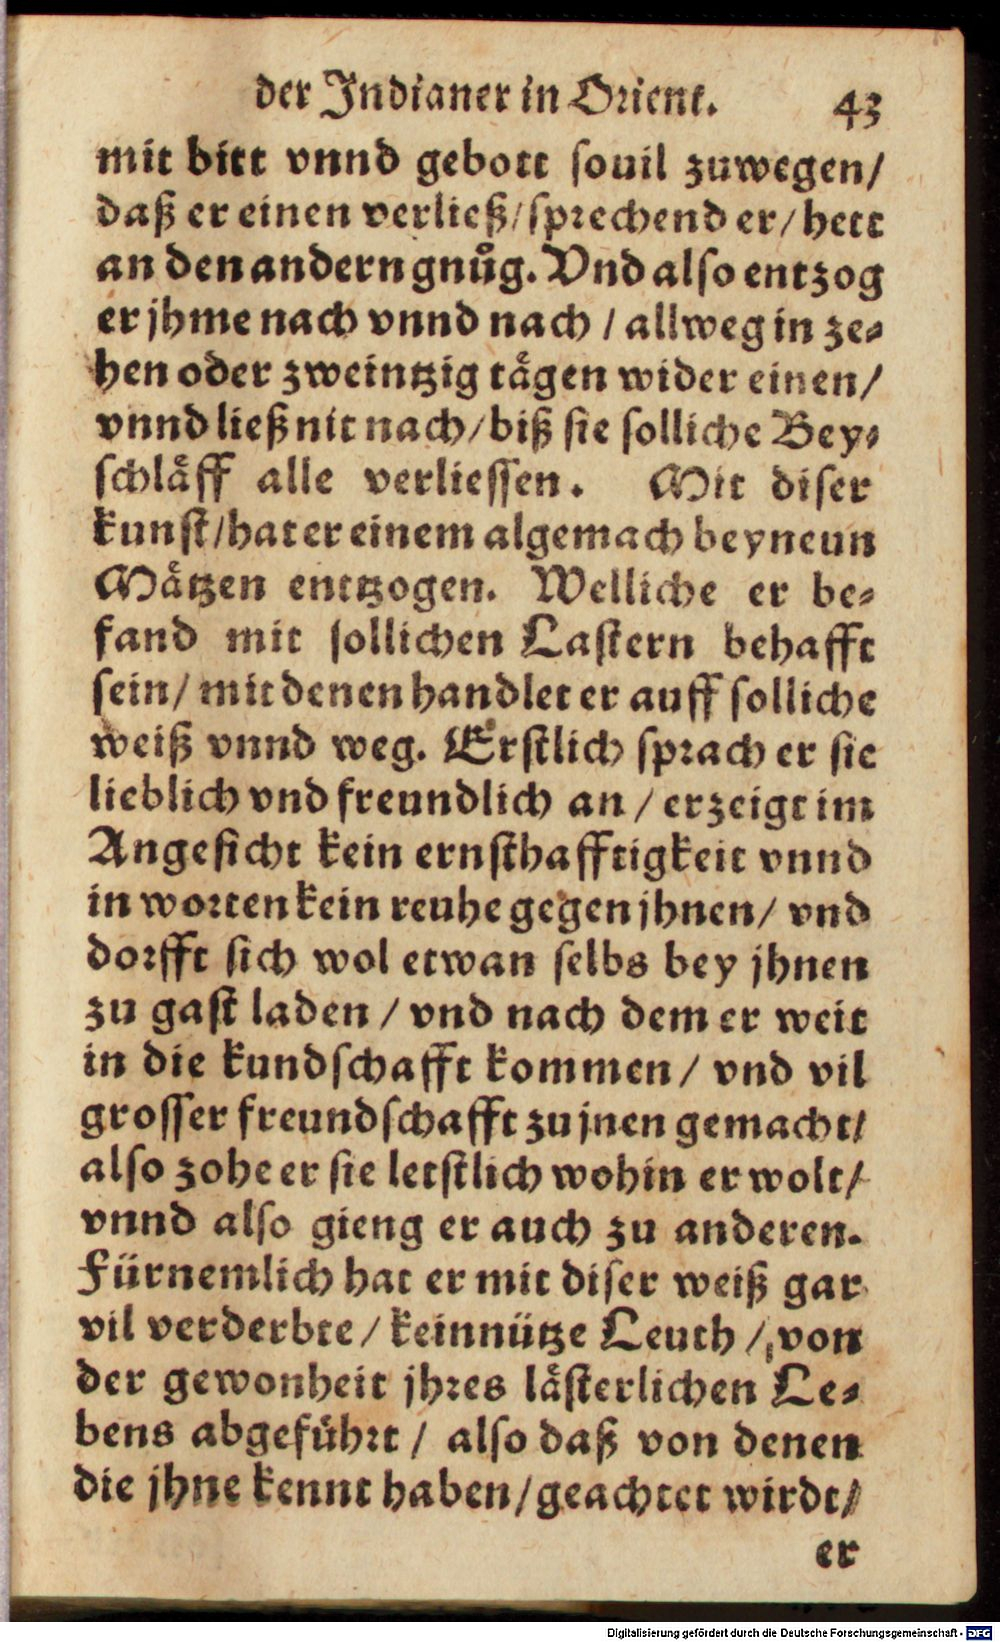 der Indianer in Orient. 43
mit bitt vnnd gebott souil zuwegen/
daß er einen verließ/ sprechend er/ hett
an den andern gnůg. Vnd also entzog
er jhme nach vnnd nach / allweg in ze⸗
hen oder zweintzig tågen wider einen/
vnnd ließ nit nach/ biß sie solliche Bey⸗
schlåff alle verliessen. Mit diser
kunst/ hat er einem algemach bey neun
Måtzen enttzogen. Welliche er be⸗
fand mit sollichen Lastern behafft
sein/ mit denen handlet er auff solliche
weiß vnnd weg. Erstlich sprach er sie
lieblich vnd freundlich an / erzeigt im
Angesicht kein ernsthafftigkeit vnnd
in worten kein reuhe gegen jhnen/ vnd
dorfft sich wol etwan selbs bey jhnen
zu gast laden / vnd nach dem er weit
in die kundschafft kommen / vnd vil
grosser freundschafft zu jnen gemacht/
also zohe er sie letstlich wohin er wolt/
vnnd also gieng er auch zu anderen.
Fürnemlich hat er mit diser weiß gar
vil verderbte / keinnütze Leuth / von
der gewonheit jhres låsterlichen Le⸗
bens abgeführt / also daß von denen
die jhne kennt haben/ geachtet wirdt/
er
Digitalisierung gefördert durch die Deutsche Forschungsgemeinschaft - DFG